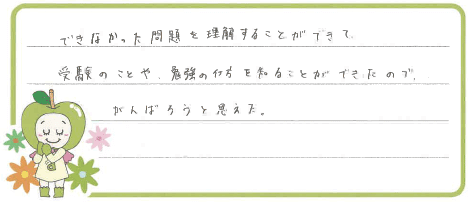 できなかった問題を理解することができて、
受験のことや、勉強の仕方を知ることができたので、
がんばろうと思えた。